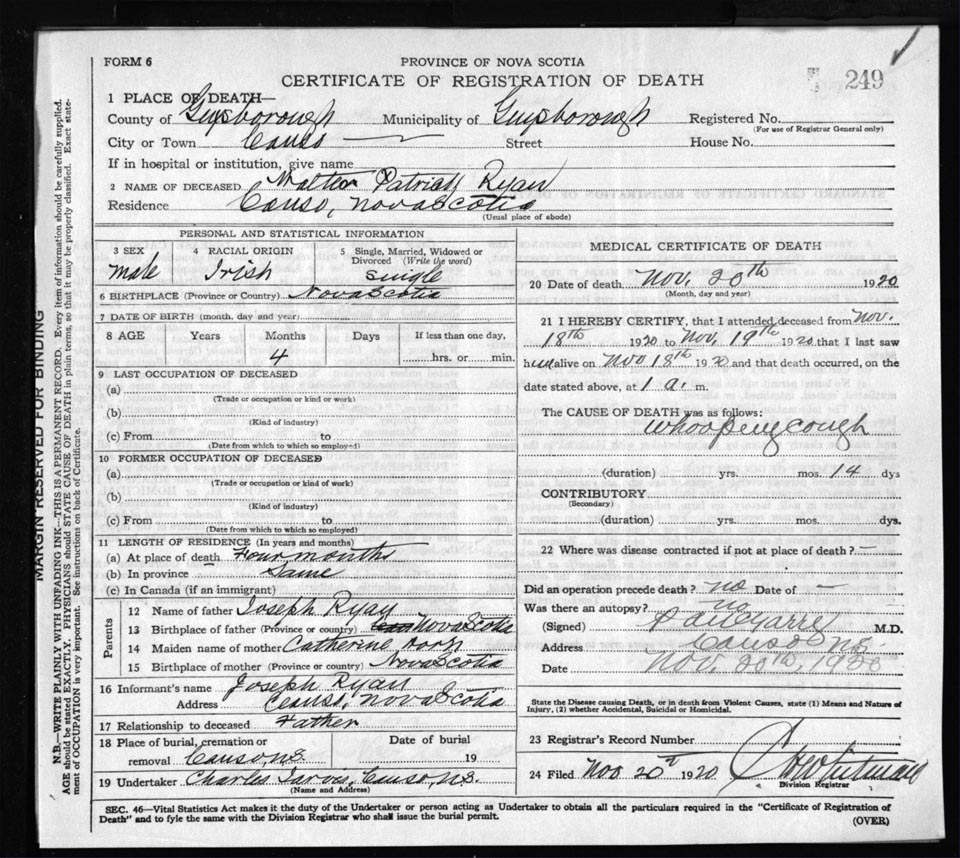 FORM 6
PROVINCE OF NOVA SCOTIA
CERTIFICATE OF REGISTRATION OF DEATH
249
1 PLACE OF DEATH—
County of Guysborough Municipality of Guysborough Registered No.
(For use of Registrar General only)
City or Town Canso Street House No.
If in hospital or institution, give name
2 NAME OF DECEASED Walter Patrick Ryan
Residence Canso, Nova Scotia
(Usual place of abode)
PERSONAL AND STATISTICAL INFORMATION
3 SEX 4 RACIAL ORIGIN 5 Single, Married, Widowed or
Divorced (Write the word)
Male Irish Single
6 BIRTHPLACE (Province or Country) Nova Scotia
7 DATE OF BIRTH (month, day and year)
8 AGE Years Months Days If less than one day,
4 hrs. or min.
9 LAST OCCUPATION OF DECEASED
(a)
(Trade or occupation or kind or work)
(b)
(Kind of industry)
(c) From to
(Date from which to which so employed)
10 FORMER OCCUPATION OF DECEASED
(a)
(Trade or occupation or kind of work)
(b)
(Kind of industry)
(c) From to
(Date from which to which so employed)
11 LENGTH OF RESIDENCE (In years and months)
(a) At place of death Four months
(b) In province Same
(c) In Canada (if an immigrant)
Parents
12 Name of father Joseph Ryan
13 Birthplace of father (Province or country) Nova Scotia
14 Maiden name of mother Catherine
15 Birthplace of mother (Province or country) Nova Scotia
16 Informant's name Joseph Ryan
Address Canso, Nova Scotia
17 Relationship to deceased Father
18 Place of burial, cremation or Date of burial
removal Canso, N.S. 19
19 Undertaker Charles Jarvis, Canso, N.S.
(Name and Address)
MEDICAL CERTIFICATE OF DEATH
20 Date of death Nov. 20th 1920
(Month, day and year)
21 I HEREBY CERTIFY, that I attended deceased from Nov.
18th 1920 to Nov. 19th 1920 that I last saw
him alive on Nov 18th 1920 and that death occurred, on the
date stated above, at 1 a. m.
The CAUSE OF DEATH was as follows:
Whooping cough
(duration) yrs. mos. 14 dys
CONTRIBUTORY
(Secondary)
(duration) yrs. mos. dys.
22 Where was disease contracted if not at place of death? —
Did an operation precede death? no Date of —
Was there an autopsy? no
(Signed) M.D.
Address Canso N.S.
Date Nov. 20th, 1920
State the Disease causing Death, or in death from Violent Causes, state (1) Means and Nature of
Injury, (2) whether Accidental, Suicidal or Homicidal.
23 Registrar's Record Number
24 Filed Nov 20th 1920
Division Registrar
SEC. 46—Vital Statistics Act makes it the duty of the Undertaker or person acting as Undertaker to obtain all the particulars required in the "Certificate of Registration of
Death" and to fyle the same with the Division Registrar who shall issue the burial permit.
(OVER)
MARGIN RESERVED FOR BINDING
N.B.—WRITE PLAINLY WITH UNFADING INK—THIS IS A PERMANENT RECORD. Every item of information should be carefully supplied.
AGE should be stated EXACTLY. PHYSICIANS should STATE CAUSE OF DEATH in plain terms, so that it may be properly classified. Exact state-
ment of OCCUPATION is very important. See instructions on back of Certificate.